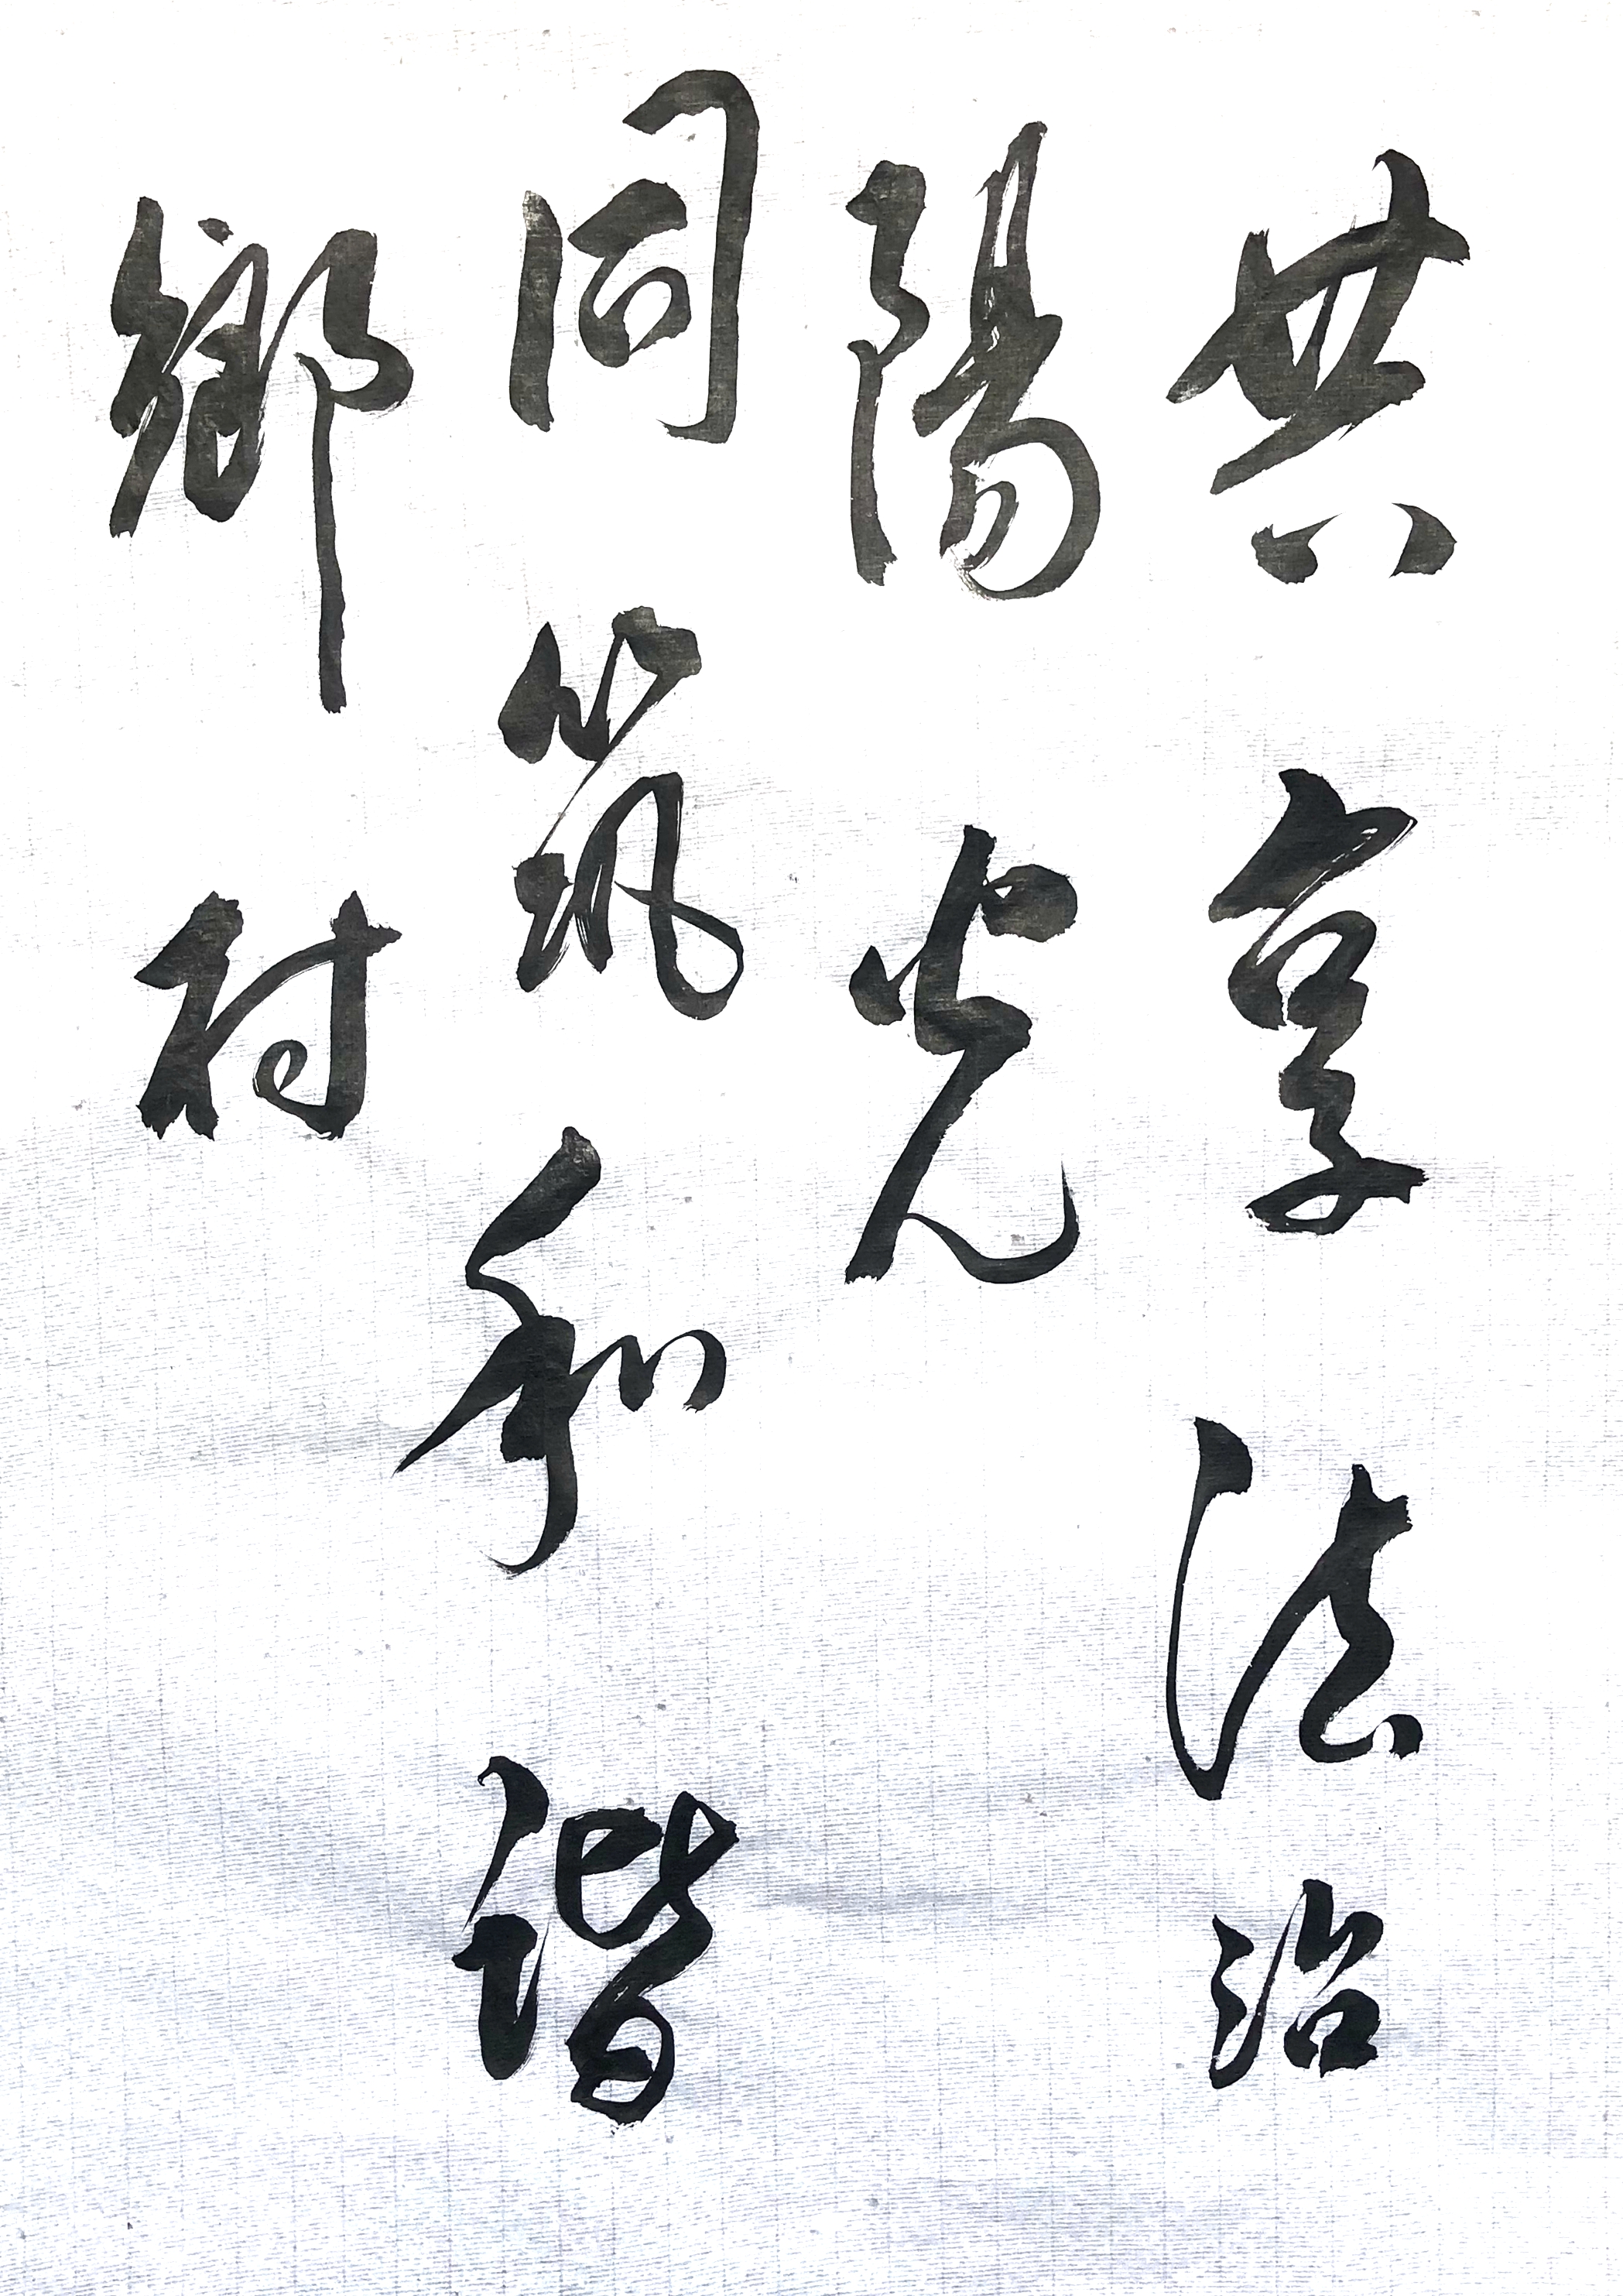 共享法治
陽光
同筑和諧
鄉村